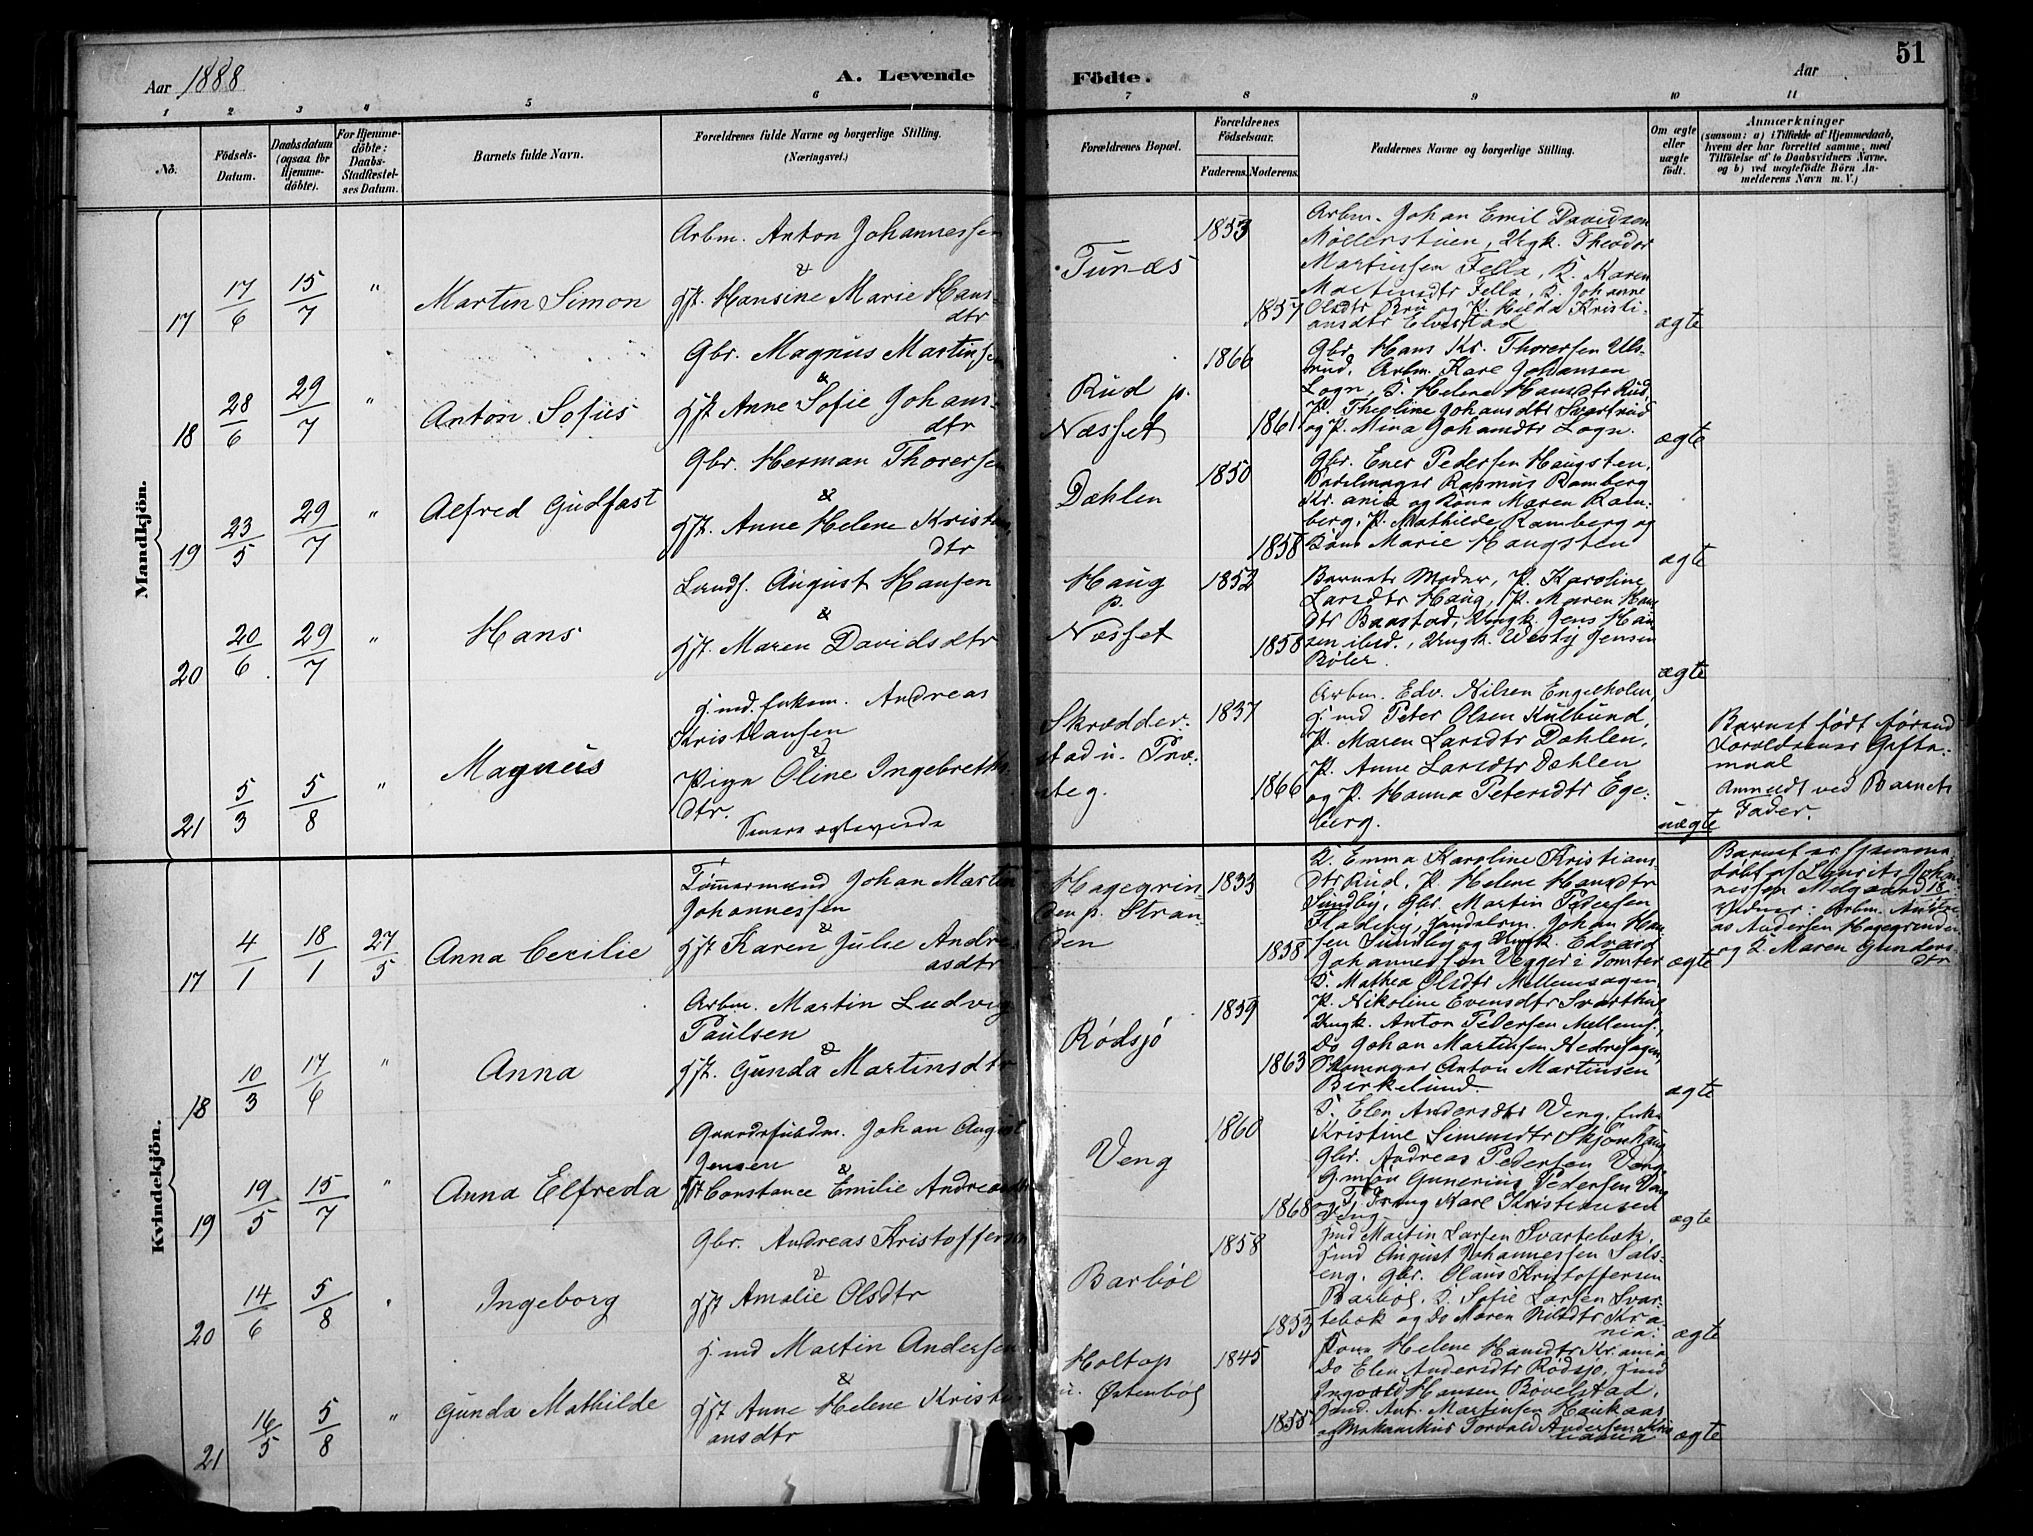 51
Aar 1888
A. Levende
Födte.
Aar
1 2 3 4 5 6 7 8 9 10 11
No.
Födsels-
Datum.
Daabsdatum
(ogsaa for
Hjemme-
döbte).
For Hjemme-
döbte:
Daabs-
Stadfæstel-
ses Datum.
Barnets fulde Navn.
Forældrenes fulde Navne og borgerlige Stilling.
(Næringsvei.)
Forældrenes Bopæl.
Forældrenes
Födselsaar.
Faderens.
Moderens.
Faddernes Navne og borgerlige Stilling.
Om ægte
eller
uægte
födt.
Anmærkninger
(saasom: a) i Tilfælde af Hjemmedaab,
hvem der har forrettet samme, med
Tilföielse af to Daabsvidners Navne,
og b) ved uægtefödte Börn An-
melderens Navn m. V.)
Mandkjön.
17
17/6
15/7
"
Martin Simon
Arbm. Anton Johannessen
&
Hst. Hansine Marie Hans-
dtr
Tunæs
1853
1857
Arbm. Johan Emil Davidsen
Möllerstuen, Ungk. Theodor
Martinsen Fella, K. Karen
Martinsdtr Fella, K. Johanne
Olsdtr Bru og P. Hilda Kristi-
ansdtr Elvestad
ægte
18
28/6
29/7
"
Anton Sofus
Gbr. Magnus Martinsen
&
Hst. Anne Sofie Johans-
dtr
Rud p.
Næsset
1866
1861
Gbr. Hans Kr. Thoresen Uls-
rud, Arbm. Karl Johansen
Logn, K. Helene Hansdtr Rud,
P. Theoline Johansdtr Svartrud
og P. Mina Johansdtr Logn.
ægte
19
23/5
29/7
"
Alfred Gudfast
Gbr. Herman Thoresen
&
Hst. Anne Helene Kristens
dtr
Dæhlen
1850
1858
Gbr. Ener Pedersen Haugsten,
Sadelmager Rasmus Ramberg
Kr.ania og Kona Maren Ram-
berg, P. Mathilde Ramberg og
Kona Marie Haugsten
ægte
20
20/6
29/7
"
Hans
Landh. August Hansen
&
Hst. Maren Davidsdtr
Haug
p.
Næsset
1852
1858
Barnets Moder, P. Karoline
Larsdtr Haug, P. Maren Hans
dtr Baastad, Ungk. Jens Han-
sen ibid., Ungk. Westy Jensen
Böler.
ægte
21
5/3
5/8
"
Magnus
Andreas
Kristiansen
&
Pige Oline Ingebrets
dtr.
Senere ægtevivde
Skrædder-
stad u. Træ-
steg.
1837
1866
Arbm. Edv. Nilsen Engeholm,
Peter Olsen Kulbund,
P. Maren Larsdtr Dæhlen,
P. Anne Larsdtr Dæhlen
og P. Hanna Petersdtr Ege-
berg.
uægte
Barnet født førend
Forældrenes Gifte-
maal
Anmeldt ved Barnets
Fader.
Kvindekjön.
17
4/1
18/1
27/5
Anna Cecilie
Tømmermand Johan Martin
Johannessen
&
Hst Karen Julie Andre
asdtr
Hagegrin-
den p. Stran-
den
1833
1838
K. Emma Karoline Kristians-
dtr Rud, P. Helene Hansdtr
Sundby, Gbr. Martin Pedersen
Fladeby, Johan Han-
sen Sundby og Ungk. Edvard
Johannessen Vegger i Tomter
ægte
Barnet er hjemme
døbt af Laurits Johan-
nessen Melgaard 18
Vidner: Arbm. Andre-
as Andersen Hagegrinden
og K. Maren Gunders
dtr
18
10/3
17/6
"
Anna
Arbm. Martin Ludvig
Paulsen
&
Hst. Gunda Martinsdtr
Rödsjö
1859
1863
K. Mathea Olsdtr Mellemsagen,
P. Nikoline Evensdtr Svarthul,
Ungk. Anton Pedersen Mellems.
Do Johan Martinsen Nedresagen,
Skomager Anton Martinsen
Birkelund.
ægte
19
19/5
15/7
"
Anna Elfreda
Johan August
Jensen
&
Hst Constance Emilie Andreasdtr
Veng
1860
1868
K. Elen Andersdtr Veng,
Kristine Simensdtr Skjönhaug
Gbr. Andreas Pedersen Veng,
Gunerius Pedersen Veng
Karl Kristiansen
Veng
ægte
20
14/6
5/8
"
Ingeborg
Gbr. Andreas Kristoffersen
&
Hst Amalie Olsdtr
Barböl
1858
1853
Hmd Martin Larsen Svartebæk,
Hmd August Johannessen Sals-
eng, Gbr. Olaus Kristoffersen
Barböl, K. Sofie Larsen Svar-
tebæk og Do Maren Nilsdtr Kr.a-
nia.
ægte
21
16/5
5/8
"
Gunda Mathilde
Hmd Martin Andersen
&
Hst Anne Helene Kristi
ansdtr
Holtop
u. Østenböl
1845
1855
Kona Helene Hansdtr Kr.ania
Do Elen Andersdtr Rödsjö, Hmd
Ingvald Hansen Bövelstad,
Hmd. Ant. Martinsen Haukaas
og Mekanikus Torvald Andersen Kris
tiania
ægte